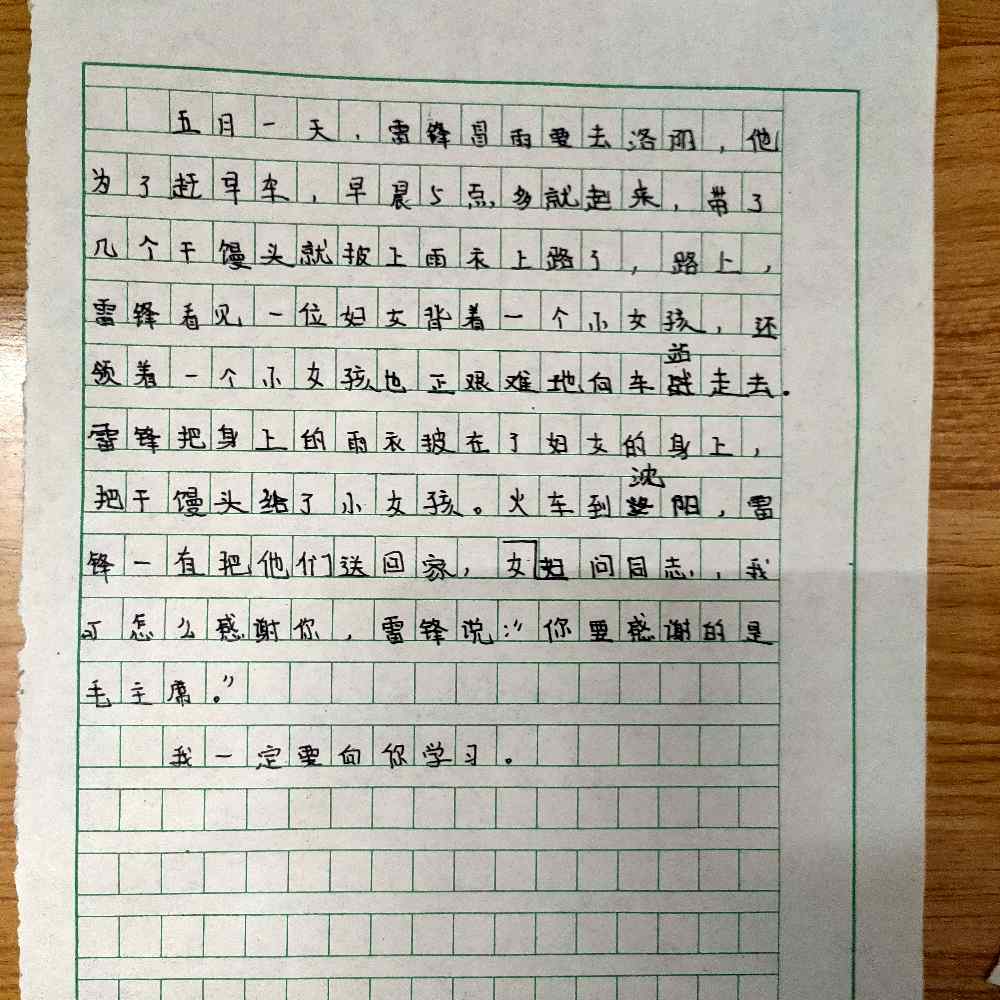 五月一天，雷锋冒雨要去洛阳，他
为了赶早车，早晨5点多就起来，带了
几个干馒头就披上雨衣上路了，路上，
雷锋看见一位妇女背着一个小女孩，还
领着一个小女孩也正艰难地向车站走去。
雷锋把身上的雨衣披在了妇女的身上，
把干馒头给了小女孩。火车到沈阳，雷
锋一直把他们送回家，女妇问同志，我
可怎么感谢你，雷锋说：“你要感谢的是
毛主席。”
我一定要向你学习。